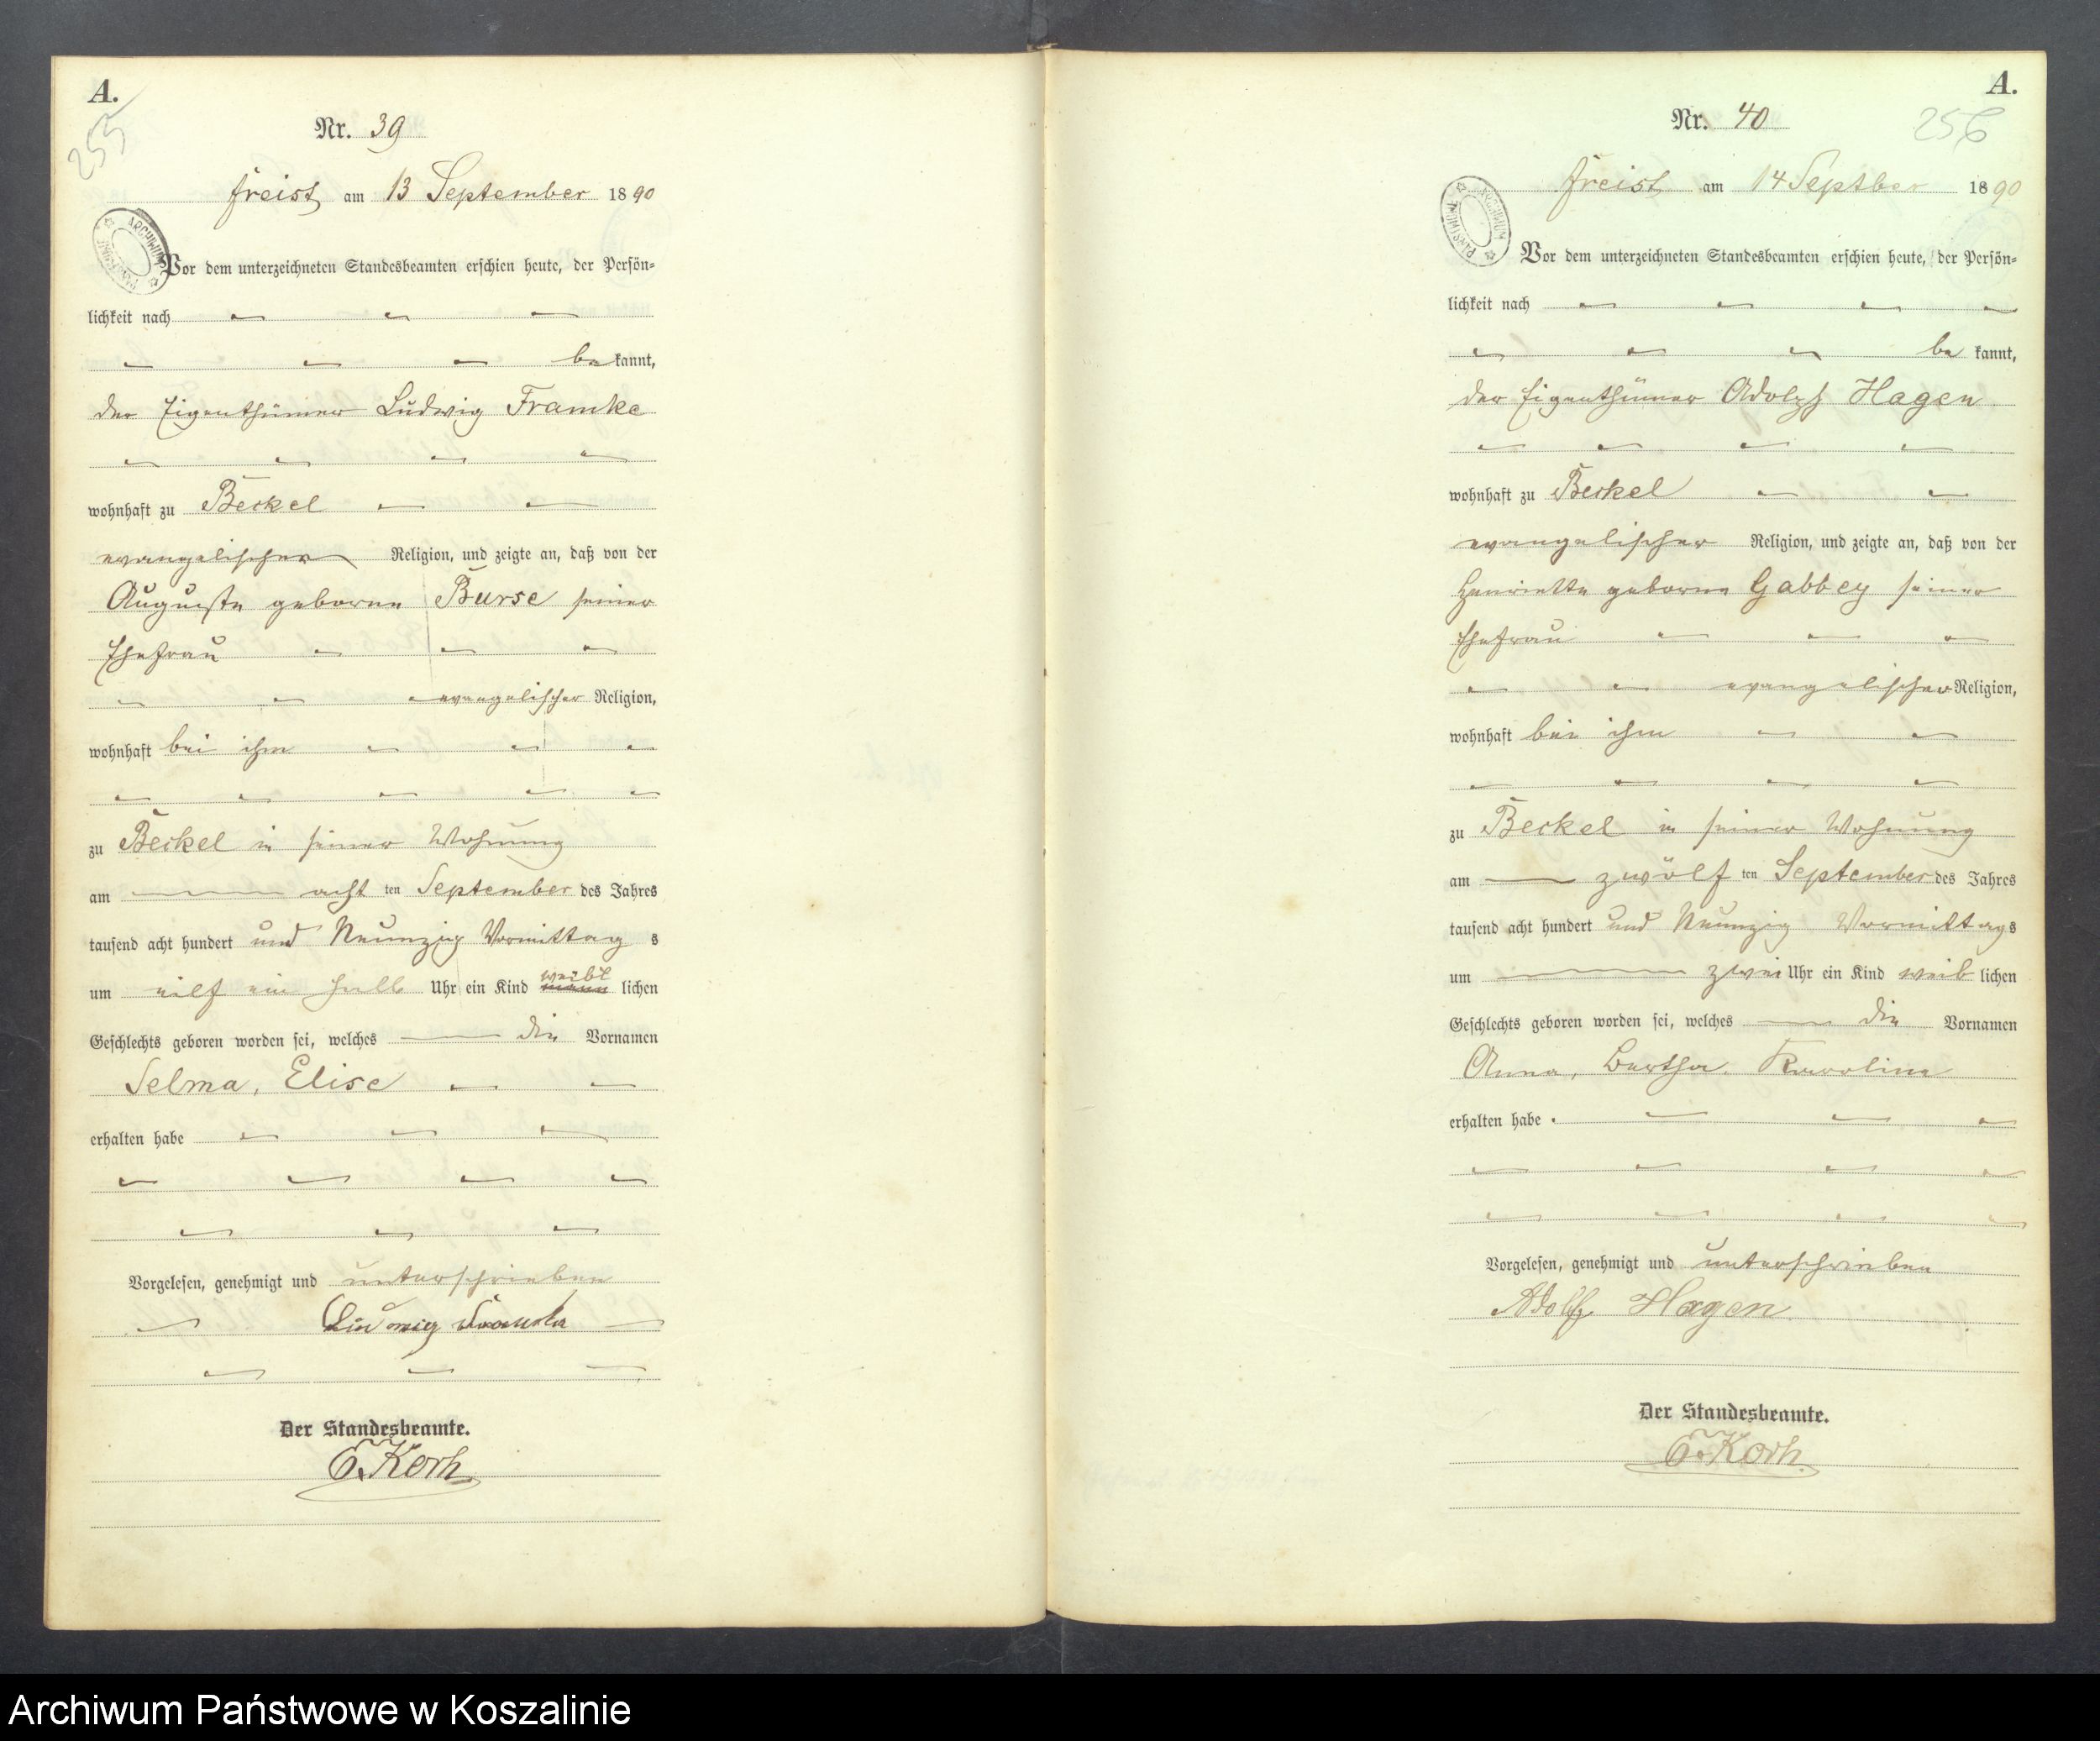 A.
255
Nr. 39
Freist am 13 September 1890
ARCHIWUM PAŃSTWOWE
Vor dem unterzeichneten Standesbeamten erschien heute, der Persön-
lichkeit nach
be kannt,
der Eigenthümer Ludwig Framke
wohnhaft zu Beckel
evangelischer Religion, und zeigte an, daß von der
Auguste geborne Burse seiner
Ehefrau
evangelischer Religion,
wohnhaft bei ihm
zu Beckel in seiner Wohnung
am acht ten September des Jahres
tausend acht hundert und Neunzig Vormittag s
um eilf ein halb Uhr ein Kind mann weibl lichen
Geschlechts geboren worden sei, welches die Vornamen
Selma, Elise
erhalten habe
Vorgelesen, genehmigt und unterschrieben
Ludwig Framke
Der Standesbeamte.
E. Korth
A.
256
Nr. 40
Freist am 14 Septber 1890
ARCHIWUM PAŃSTWOWE
Vor dem unterzeichneten Standesbeamten erschien heute, der Persön-
lichkeit nach
be kannt,
der Eigenthümer Adolph Hagen
wohnhaft zu Beckel
evangelischer Religion, und zeigte an, daß von der
Henriette geborne Gabbey seiner
Ehefrau
evangelischer Religion,
wohnhaft bei ihm
zu Beckel in seiner Wohnung
am zwölf ten September des Jahres
tausend acht hundert und Neunzig Vormittags
um zwei Uhr ein Kind weib lichen
Geschlechts geboren worden sei, welches die Vornamen
Anna, Bertha, Karoline
erhalten habe.
Vorgelesen, genehmigt und unterschrieben
Adolf Hagen
Der Standesbeamte.
E. Korth.
Archiwum Państwowe w Koszalinie